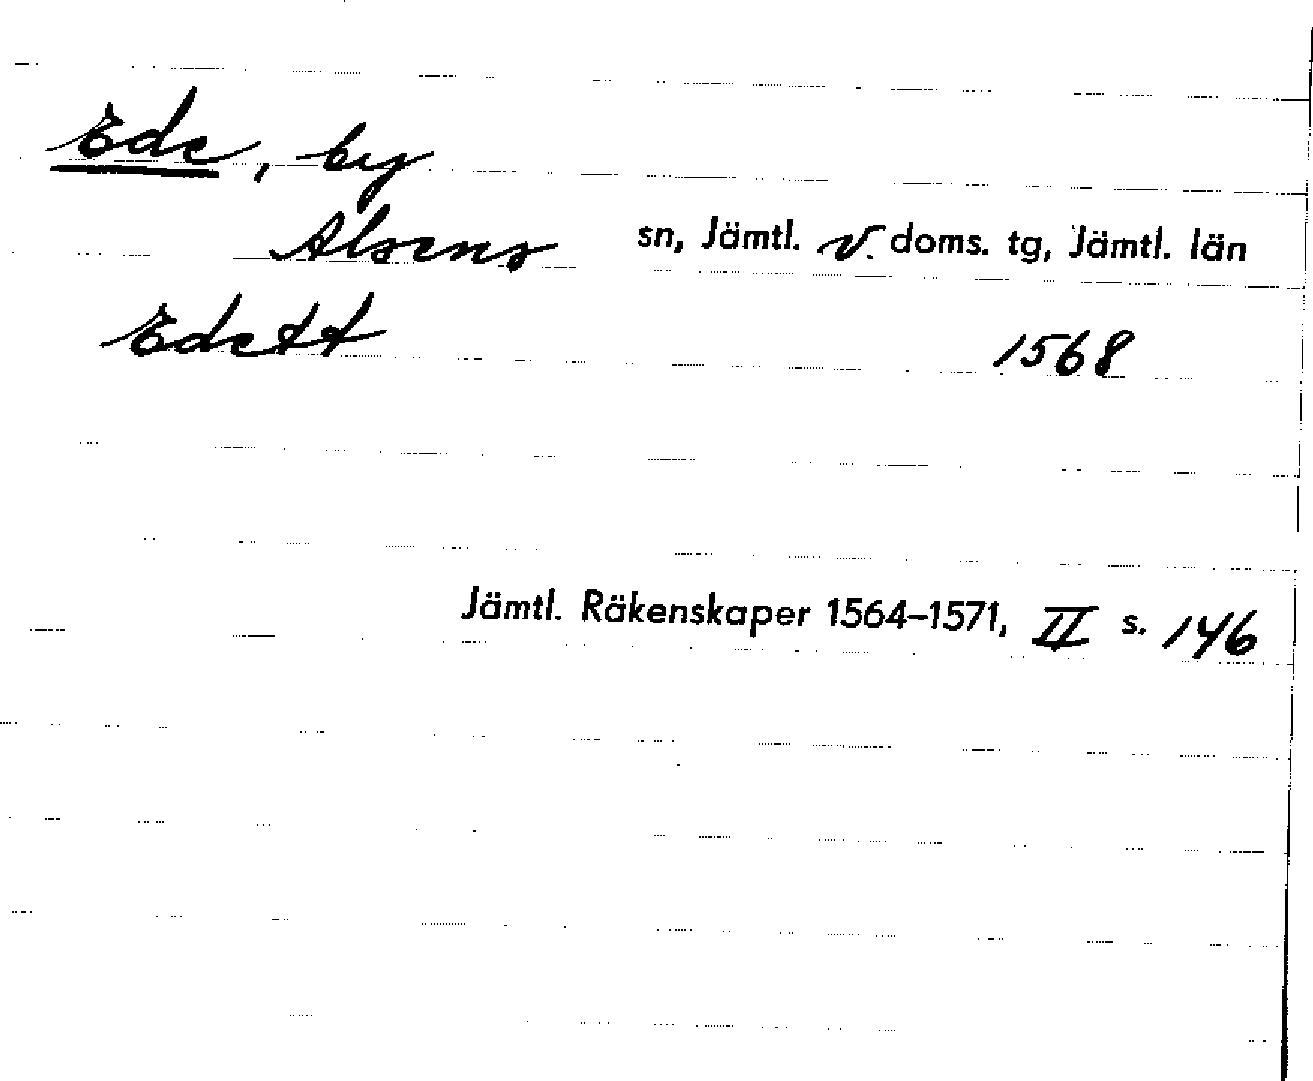 Ede, by
Alsens sn, Jämtl. v. doms. tg, Jämtl. län
Edett 1568
Jämtl. Räkenskaper 1564–1571, II s. 146